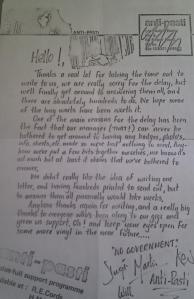 anti-pasti
ANTI-PASTI
Hello!,
Thanks a real lot for taking the time out to
write to us, we are really sorry for the delay, but
we'll finally get around to answering them all, and
there are absolutely hundreds to do. We hope some
of the long waits have been worth it.
One of the main reasons for the delay has been
the fact that our manager (twat!) can never be
bothered to get around to having any badges, photos,
info, sheets, etc. made so we've had nothing to send,
time we've put a few bits together ourselves, we know it's
not much but at least it shows that we've bothered to
answer.
We didn't really like the idea of writing one
letter, and having hundreds printed to send out, but
to answer them all personally would take weeks.
Anyhow thanks again for writing, and a really big
thanks to everyone who's been along to our gigs and
given us support. Oh! and keep your eyes open for
some more vinyl in the near future....
"NO GOVERNMENT"
Mark.
Kev
Will
Anti-Pasti
anti-pasti
support programme
available at: